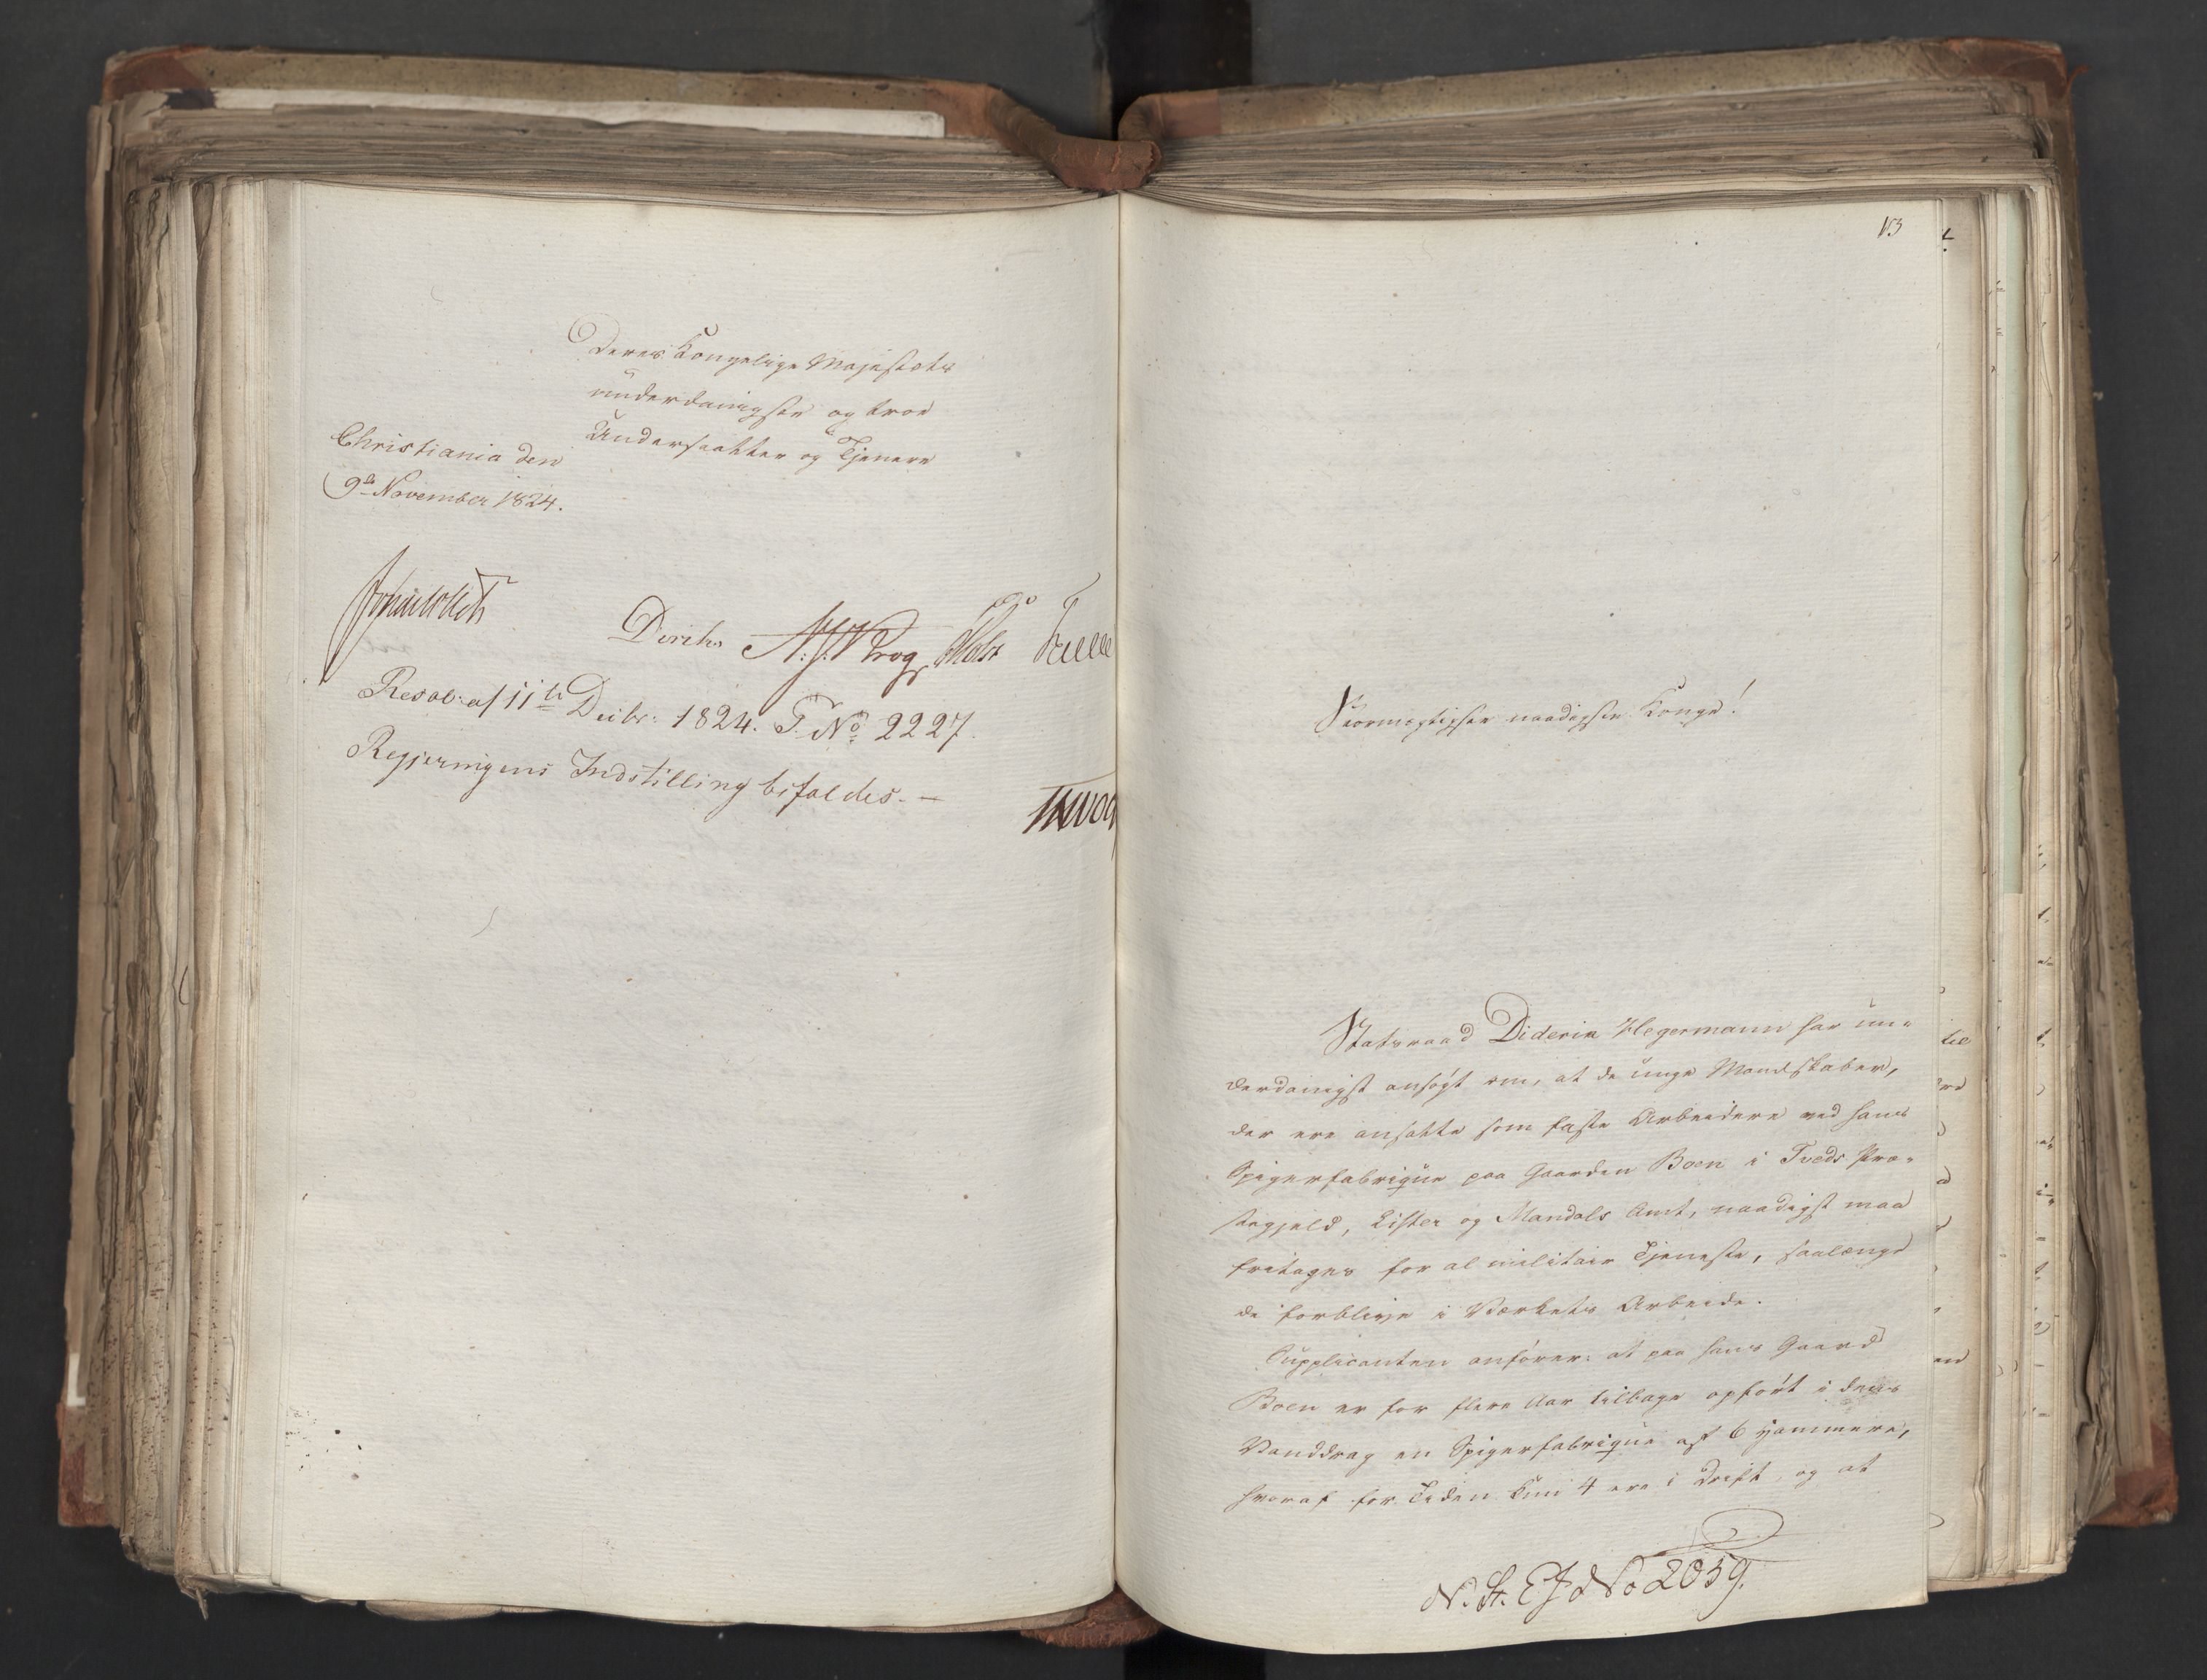 Deres Kongelige Majestæts
underdanigste og troe
Undersaatter og Tjenere
Christiania den
9de November 1824.
Diriks
Resol: af 11te Decbr: 1824. P. No 2227.
Regjeringens Indstilling bifaldes. —
Stormægtigste naadigste Konge!
Statsraad Diderik Hegermann har un-
derdanigst ansøgt om, at de unge Mandskaber,
der ere ansatte som faste Arbeidere ved hans
Spigerfabrique paa Gaarden Boen i Tveds Præ-
stegjeld, Lister og Mandals Amt, naadigst maa
fritages for al militair Tjeneste, saalænge
de forblive i Værkets Arbeide.
Supplicanten anfører: at paa hans Gaard
Boen er for flere Aar tilbage opført i dens
Vanddrag en Spigerfabrique af 6 Hammere,
hvoraf for Tiden kun 4 ere i Drift, og at
N. St. E J No 2059.